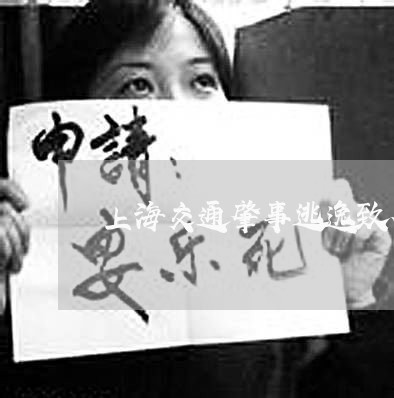 申請:
上海交通肇事逃逸致
安乐死